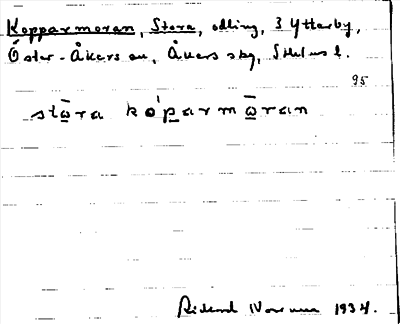 Kopparmoran, Stora, odling, 3 Ytterby,
Öster-Åkers sn, Åkers skg, Sthlms l.
95
stω̲̄ra ko̍p̲armω̲̄ran
1934.